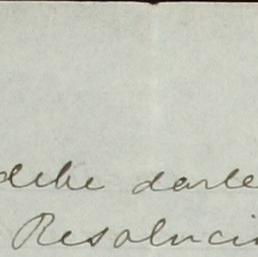 debe darle
Resolució